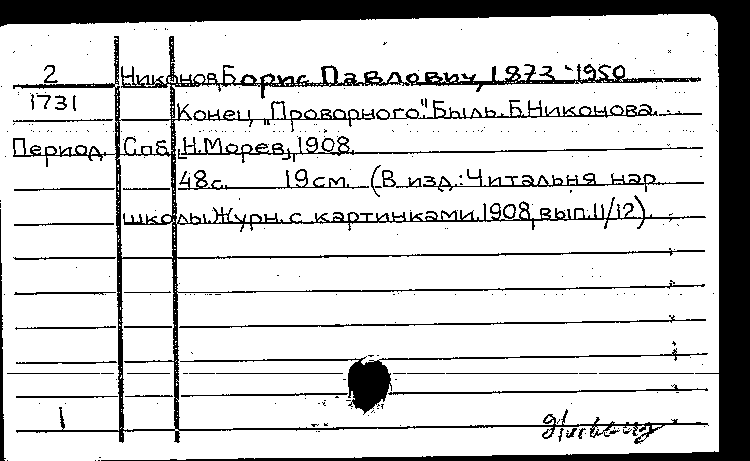 2 Никонов, Борис Павлович, 1873-1950
1731 Конец „Проворного". Быль. Б. Никонова.
Период. Спб., Н. Морев, 1908.
48 с. 19 см. (В изд.: Читальня нар.
школы. Журн. с картинками. 1908, вып. 11/12).
1